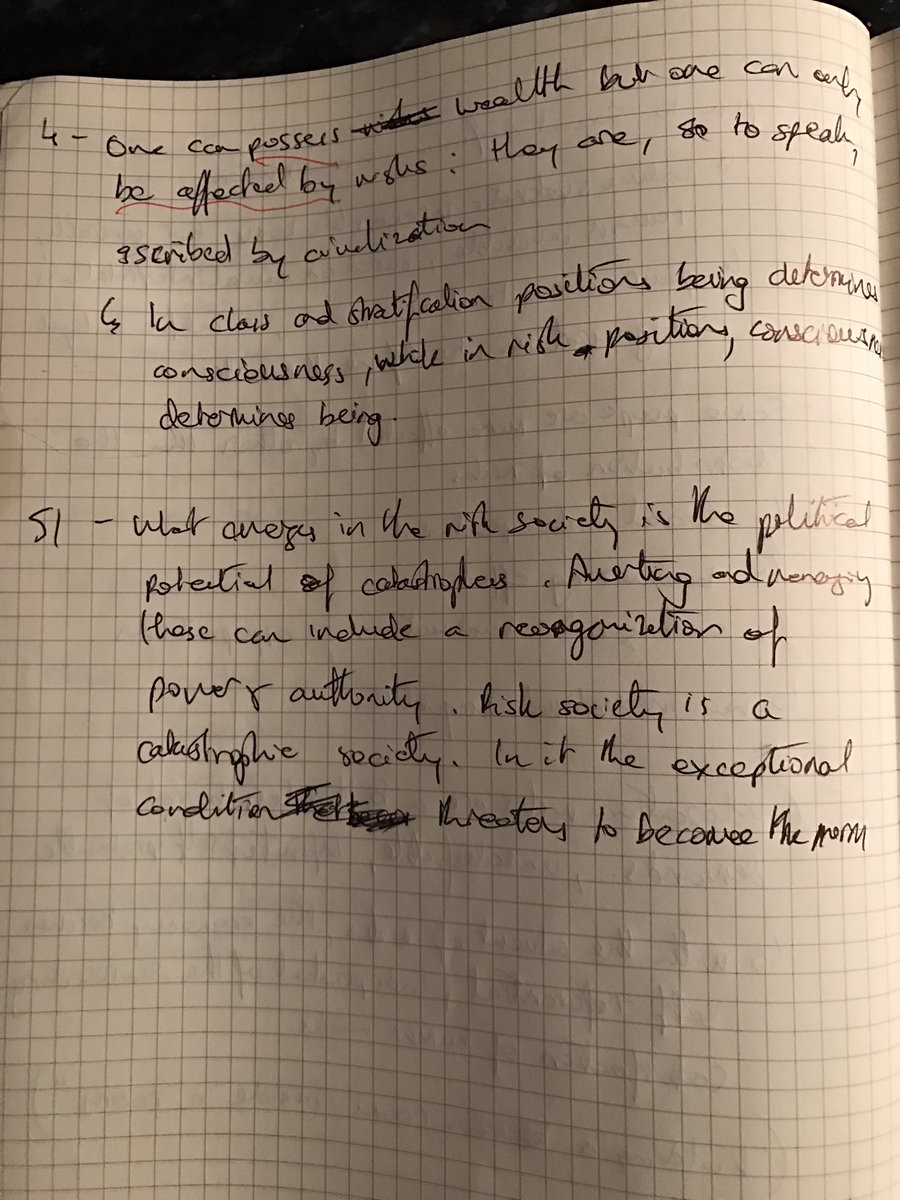 4 - One can possess wealth but one can only
be affected by risks : they are, so to speak,
ascribed by civilization
↳ In class and stratification positions being determines
consciousness, while in risk positions, consciousness
determines being.
5/ - What emerges in the risk society is the political
potential of catastrophes. Averting and managing
these can include a reorganization of
power & authority. Risk society is a
catastrophic society. In it the exceptional
condition threatens to become the norm